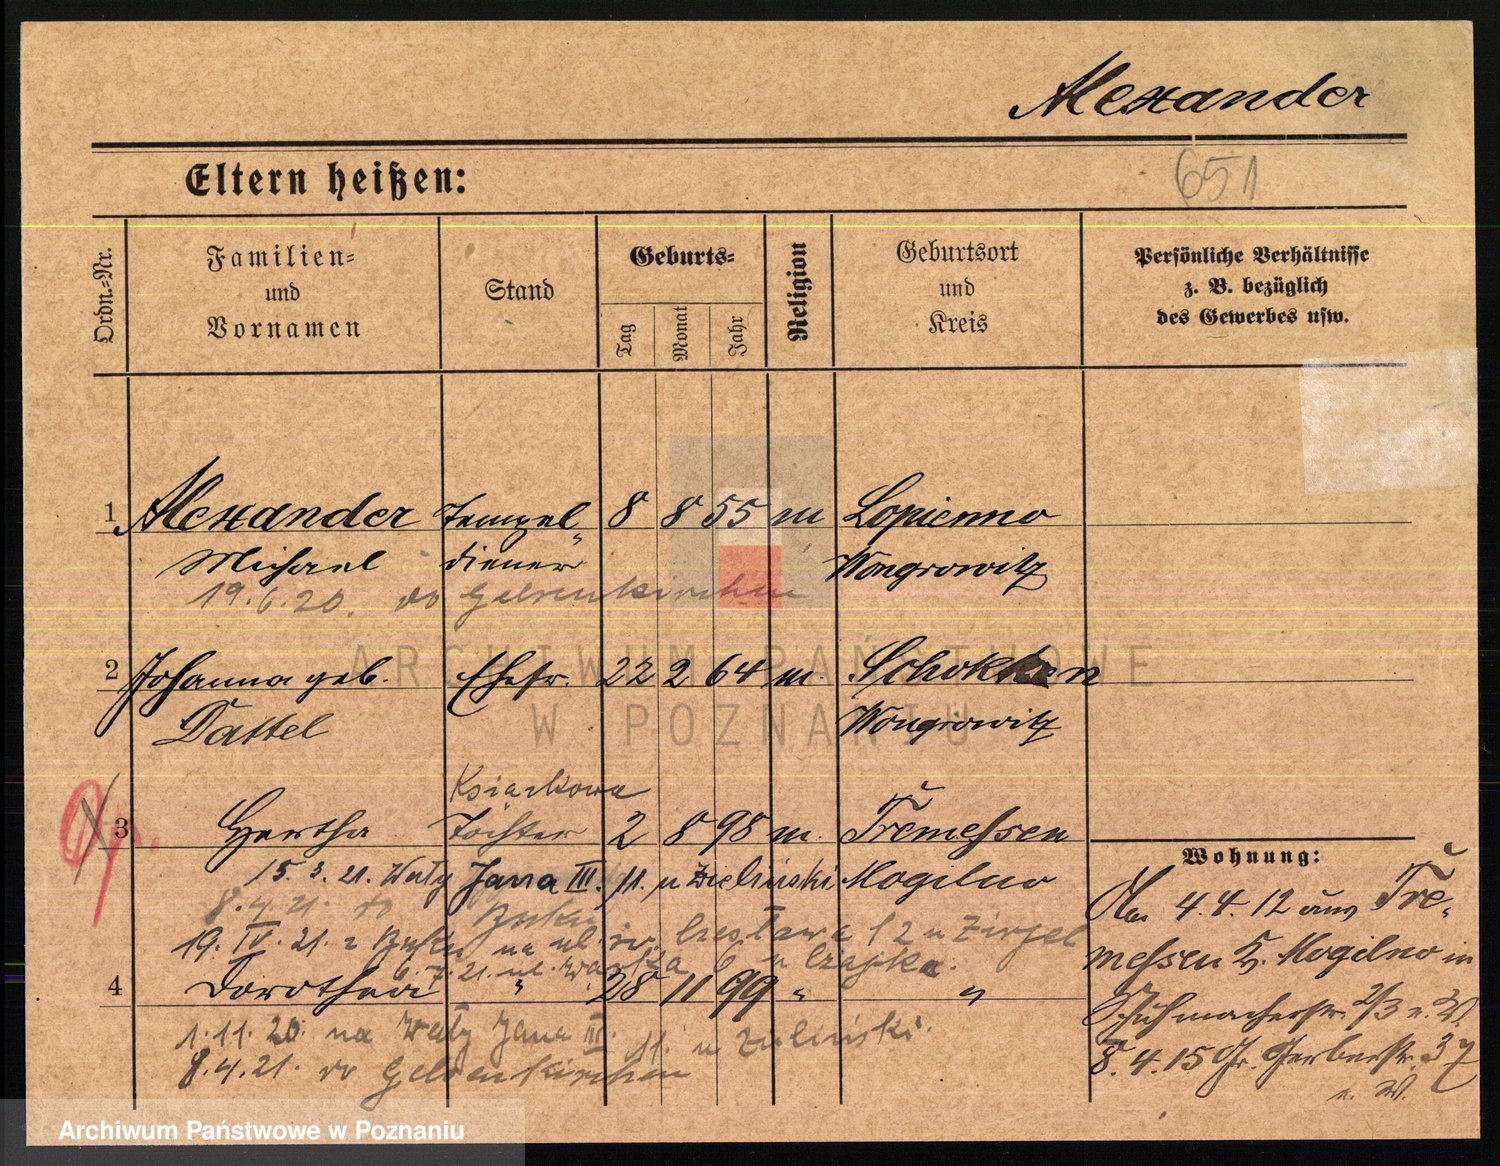 Alexander
651
Eltern heißen:
Ordn.-Nr.
Familien-
und
Vornamen
Stand
Geburts-
Tag
Monat
Jahr
Religion
Geburtsort
und
Kreis
Persönliche Verhältnisse
z. B. bezüglich
des Gewerbes usw.
1 Alexander Tempel- 8 8 55 m Lopienno
Michael diener Wongrowitz
19.6.20. do Gelsenkirchen
2 Johanna geb. Ehefr. 22 2 64 m. Schokken
Dattel Wongrowitz
Książkowa
3 Hertha Tochter 2 8 98 m. Tremessen
15. 3. 21. Wały Jana III. 11. u Zieliński Mogilno
8.4.21. do
19. IV. 21. z na ul. 12 u
21. ul. 6 u Czajka.
4 Dorothea " 28 11 99 " "
1.11.20. na Wały Jana III. 11. u Zieliński.
8.4.21. do Gelsenkirchen
Wohnung:
Am 4.4.12 aus Tre-
messen K. Mogilno in
Schuhmacherstr. 2/3 n. W.
8.4.15 Gr. Gerberstr. 37
n. W.
ARCHIWUM PAŃSTWOWE
W POZNANIU
Archiwum Państwowe w Poznaniu